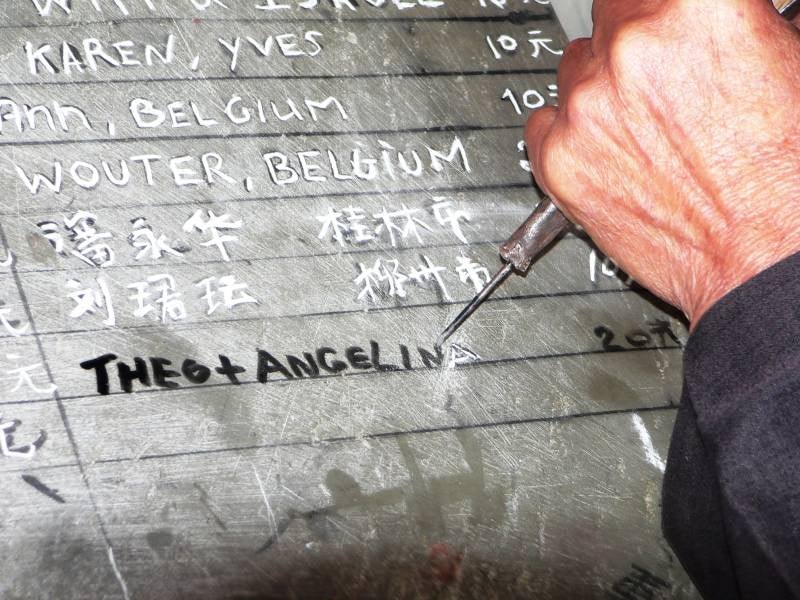 & ISRAEL
KAREN, YVES 10元
Ann, BELGIUM 10
WOUTER, BELGIUM
潘永华 桂林市
刘珺珐 柳州市 10
元 THEO + ANGELINA 20元
元